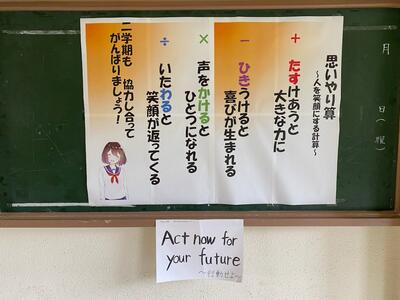 月
日(曜)
思いやり算
～人を笑顔にする計算～
＋
たすけあうと
大きな力に
－
ひきうけると
喜びが生まれる
×
声をかけると
ひとつになれる
÷
いたわると
笑顔が返ってくる
二学期も 協力し合って
がんばりましょう！
Act now for
your future
～行動せよ～